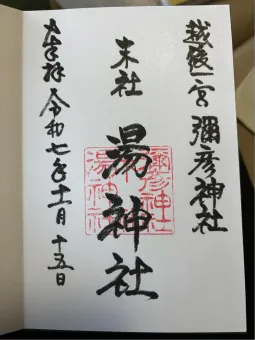 越後一宮 彌彦神社
末社 湯神社
彌彦神社
湯神社
奉拝 令和七年十一月十五日